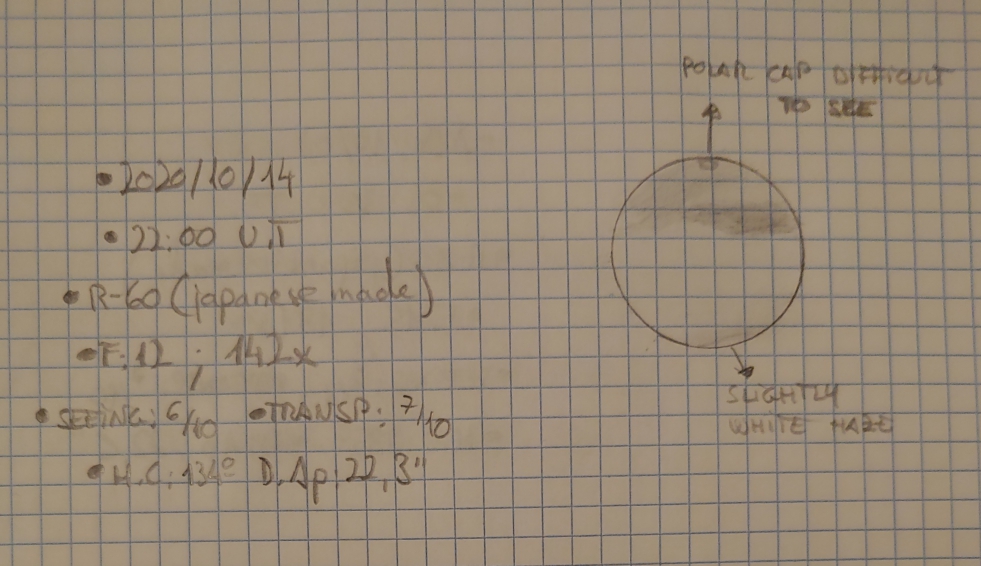 POLAR CAP DIFFICULT
TO SEE
• 2020/10/14
• 22:00 U.T
• R-60 (japanese made)
• F:12 ; 142x
• SEEING: 6/10 • TRANSP: 7/10
• M.C: 134º D.Ap: 22,3"
SLIGHTLY
WHITE HAZE